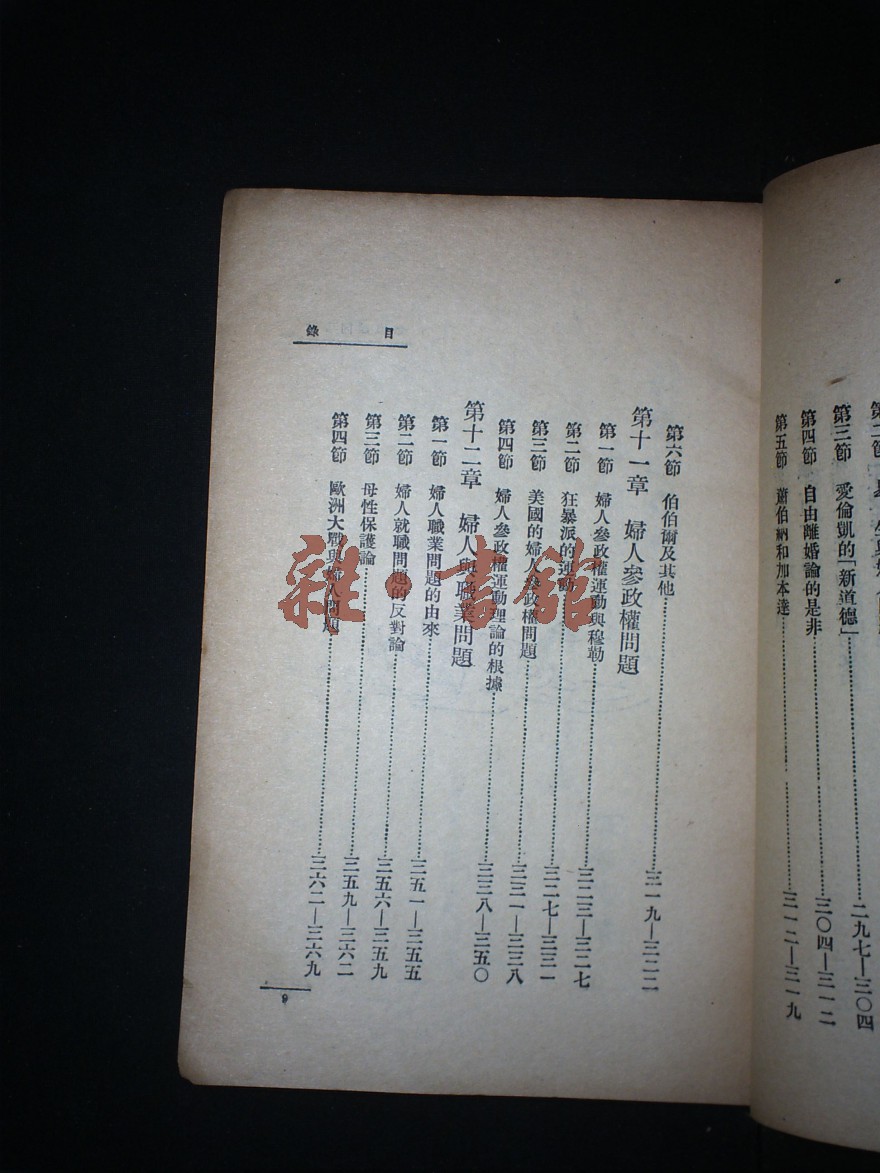 第三節 愛倫凱的「新道德」……二九七—三〇四
第四節 自由離婚論的是非……三〇四—三一二
第五節 蕭伯納和加本達……三一二—三一九
目錄
第六節 伯伯爾及其他……三一九—三二二
第十一章 婦人參政權問題
第一節 婦人參政權運動與穆勒……三二三—三二七
第二節 狂暴派的運動……三二七—三三一
第三節 美國的婦人參政權問題……三三一—三三八
第四節 婦人參政權運動理論的根據……三三八—三五〇
第十二章 婦人與職業問題
第一節 婦人職業問題的由來……三五一—三五五
第二節 婦人就職問題的反對論……三五六—三五九
第三節 母性保護論……三五九—三六二
第四節 歐洲大戰與婦人問題……三六二—三六九
9
雜·書館